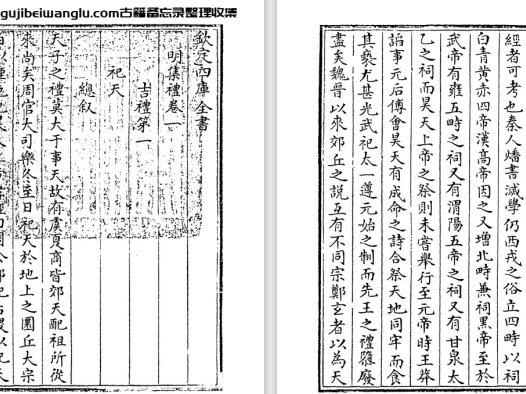 gujibeiwanglu.com古籍备忘录整理收集
欽定四庫全書
明集禮卷一
吉禮第一
祀天
總敘
天子之禮莫大于事天故有虞夏商皆郊天配祖所從
來尚矣周官大司樂冬至日祀天於地上之圜丘大宗
經者可考也秦人燔書滅學仍西戎之俗立四時以祠
白青黃赤四帝漢高帝因之又增北畤兼祠黑帝至於
武帝有雍五畤之祠又有渭陽五帝之祠又有甘泉太
乙之祠而昊天上帝之祭則未嘗舉行至元帝時王莽
諂事元后傅會昊天有成命之詩合祭天地同牢而食
其褻尤甚光武祀太一遵元始之制而先王之禮隳廢
盡矣魏晉以來郊丘之說互有不同宗鄭玄者以為天